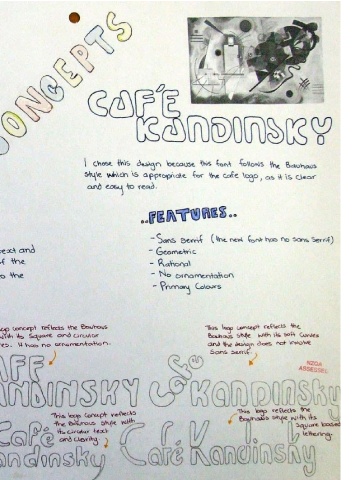 CONCEPTS
CAFÉ
KANDINSKY
I chose this design because this font follows the Bauhaus
style which is appropriate for the cafe logo, as it is clear
and easy to read.
..FEATURES..
- Sans Serrif (the new font has no sans serrif)
- Geometric
- Rational
- No ornamentation
- Primary Colours
text and
f the
o the
logo concept reflects the Bauhaus
with its square and circular
It has no ornamentation.
This logo concept reflects the
Bauhaus style with its soft curves
and the design does not involve
Sans serrif
NZQA
ASSESSED
AFE
ANDINSKY
Café
KANDINSKY
This logo concept reflects
the Bauhaus style with
its circular text
and clarity
This logo reflects the
Bauhaus style with its
square based
lettering.
Café
andinsky
Café Kandinsky